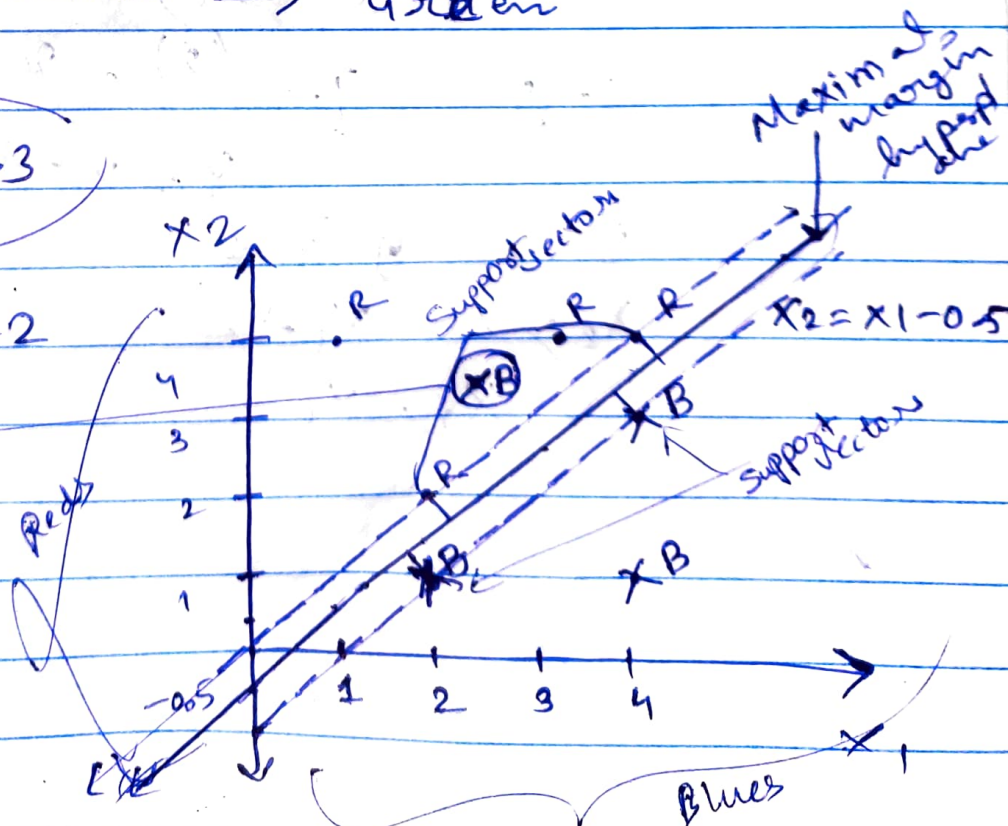 Maximal
margin
hyperpl
ane
3
X2
Support vectors
R
R
R
X2 = X1 - 0.5
2
4
XB
B
3
Support
vectors
R
2
Reds
B
B
1
-0.5
1
2
3
4
X1
Blues